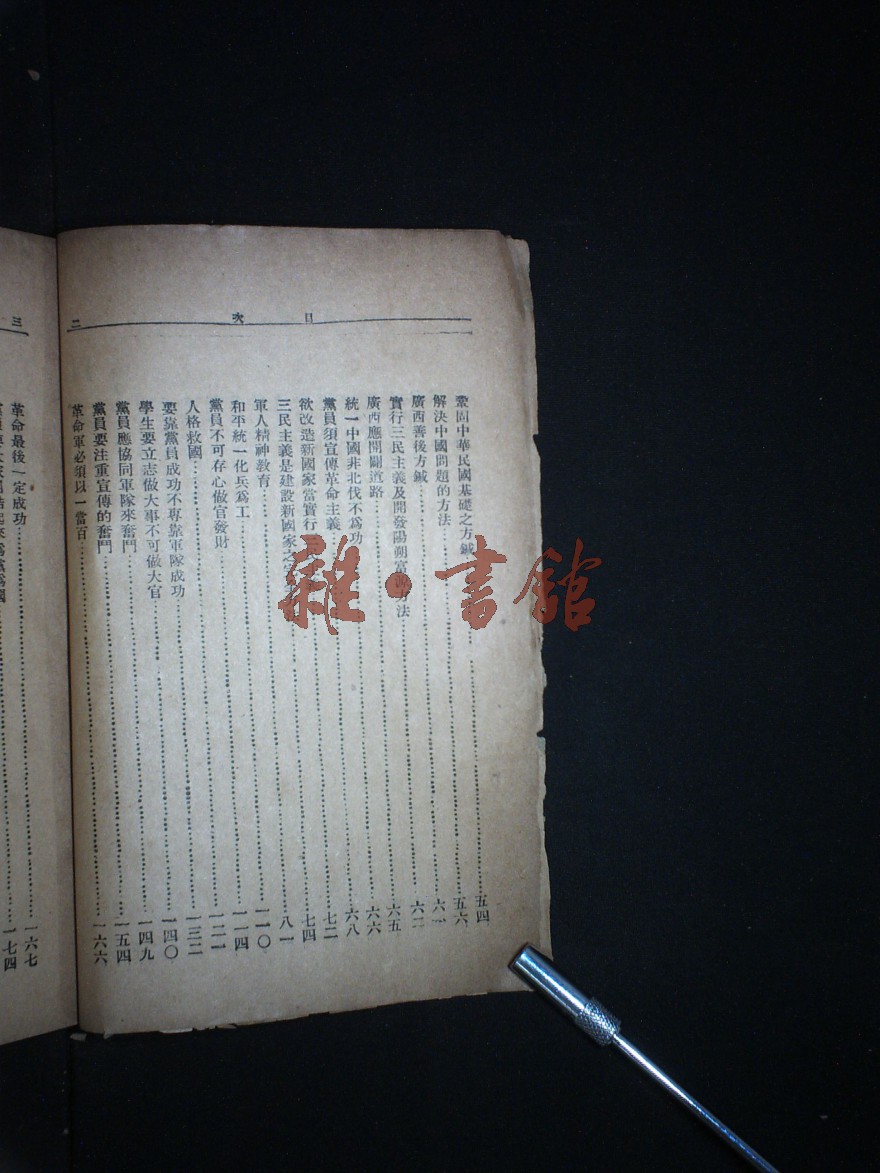 目次 二
鞏固中華民國基礎之方鍼 五四
解決中國問題的方法 五六
廣西善後方鍼 六一
實行三民主義及開發陽朔富源方法 六二
廣西應開闢道路 六五
統一中國非北伐不爲功 六六
黨員須宣傳革命主義 六八
欲改造新國家當實行三 七二
三民主義是建設新國家之 七四
軍人精神教育 八一
和平統一化兵爲工 一一〇
黨員不可存心做官發財 一一四
人格救國 一二一
要靠黨員成功不專靠軍隊成功 一三二
學生要立志做大事不可做大官 一四〇
黨員應協同軍隊來奮鬥 一四九
黨員要注重宣傳的奮鬥 一五四
革命軍必須以一當百 一六六
三
革命最後一定成功 一六七
起來爲黨爲國 一七四
雜·書館